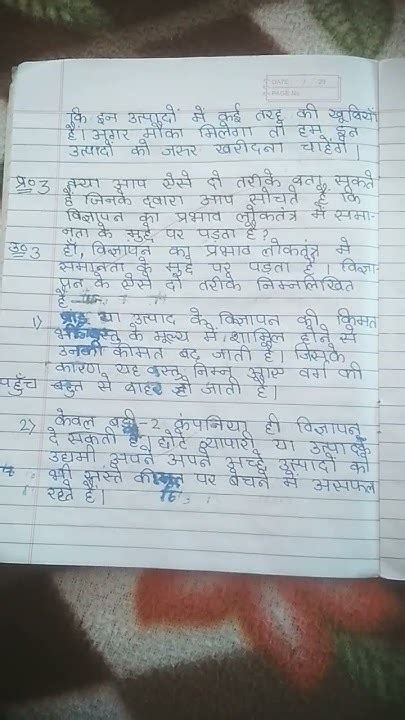 DATE / / 20
PAGE No.
कि इन उत्पादों में कई तरह की खूबियाँ
हैं। अगर मौका मिलेगा तो हम इन
उत्पादों को जरूर खरीदना चाहेंगे।
प्र०3 क्या आप ऐसे दो तरीके बता सकते
हैं जिनके द्वारा आप सोचते हैं कि
विज्ञापन का प्रभाव लोकतंत्र में समा-
नता के मुद्दे पर पड़ता है?
उ०3 हाँ, विज्ञापन का प्रभाव लोकतंत्र में
समानता के मुद्दे पर पड़ता है। विज्ञा-
पन के ऐसे दो तरीके निम्नलिखित
है
1) या उत्पाद के विज्ञापन की किमत
के मूल्य में शामिल होने से
उनकी कीमत बढ़ जाती है। जिसके
कारण यह वस्तु निम्न आय वर्ग की
पहुँच बहुत से बाहर हो जाती है।
2) केवल बड़ी-2 कंपनिया ही विज्ञापन
दे सकती है। छोटे व्यापारी या
उद्यमी अपने अपने अच्छे उत्पादों को
भी सस्ते कीमत पर बेचने में असफल
रहते हैं।